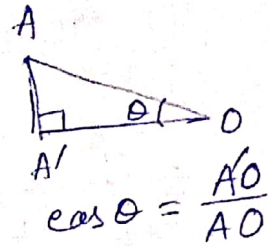 A
θ
O
A'
cos θ = A'O / AO